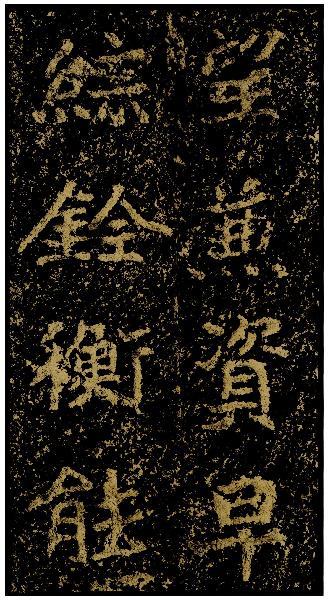 望兼資早
綜銓衡能